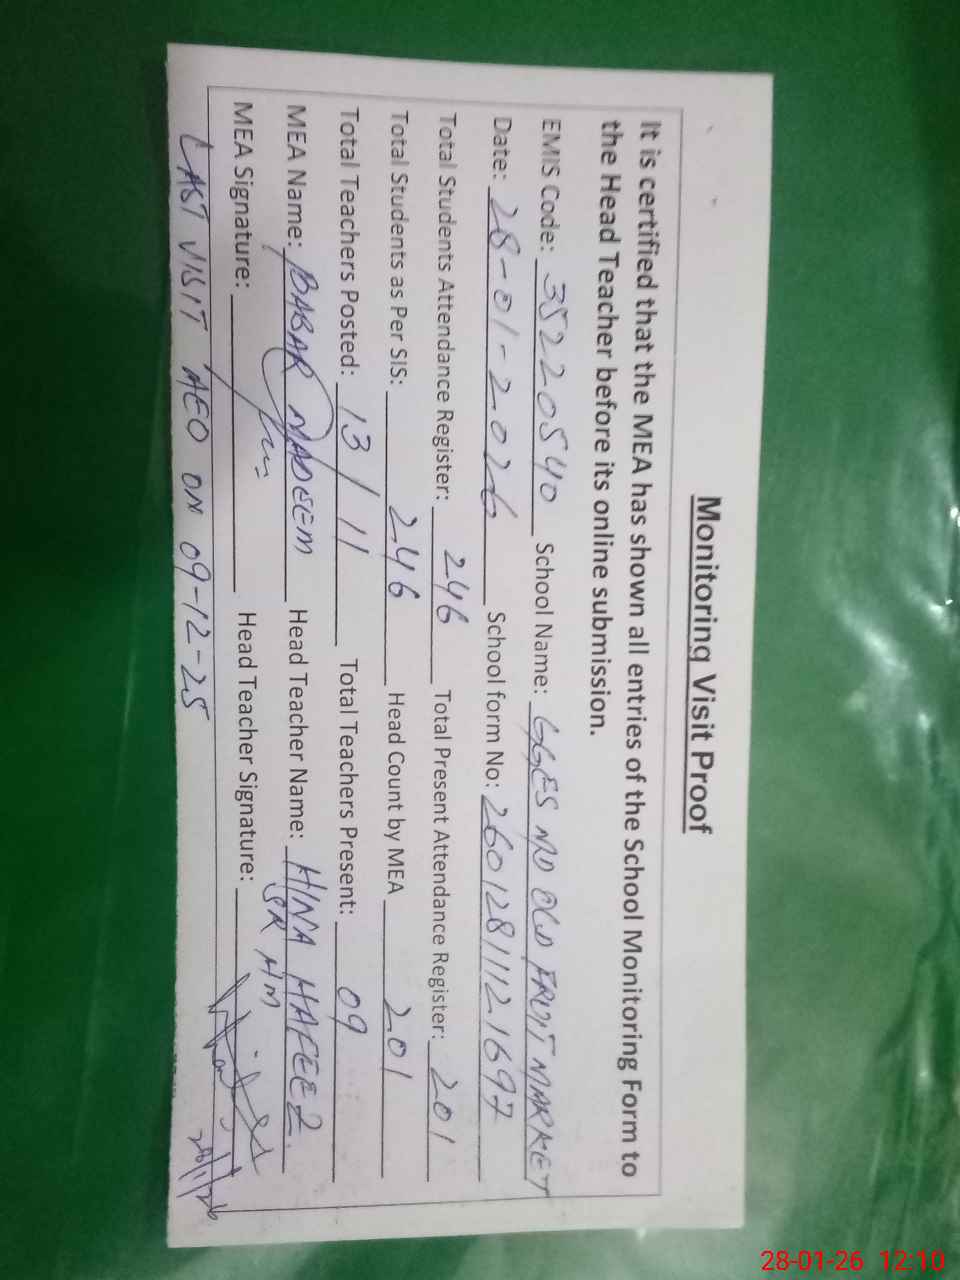 Monitoring Visit Proof
It is certified that the MEA has shown all entries of the School Monitoring Form to
the Head Teacher before its online submission.
EMIS Code: 35220540 School Name: GGES MO OLD FRUIT MARKET
Date: 28-01-2026 School form No: 26012811121697
Total Students Attendance Register: 246 Total Present Attendance Register: 201
Total Students as Per SIS: 246 Head Count by MEA 201
Total Teachers Posted: 13/11 Total Teachers Present: 09
MEA Name: BABAR NADEEM Head Teacher Name: HINA HAFEEZ
SR H/M
MEA Signature: Head Teacher Signature:
28/1/26
LAST VISIT AEO ON 09-12-25
28-01-26 12:10